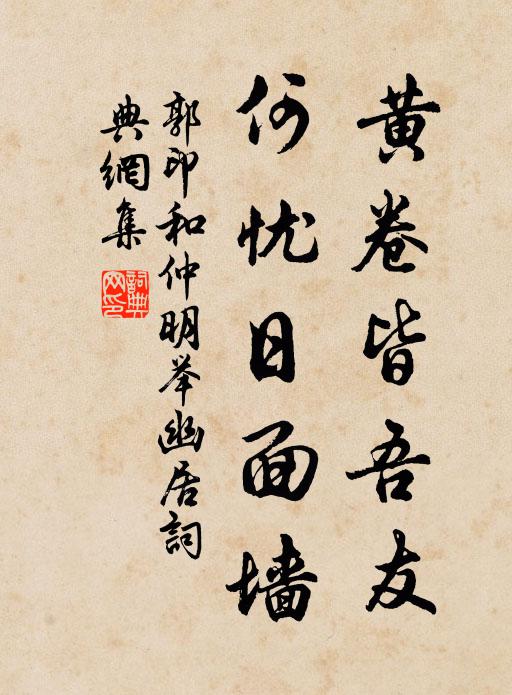 黄卷皆吾友
何忧日面墙
郭印和仲明举幽居詞
典網集
詞典网印